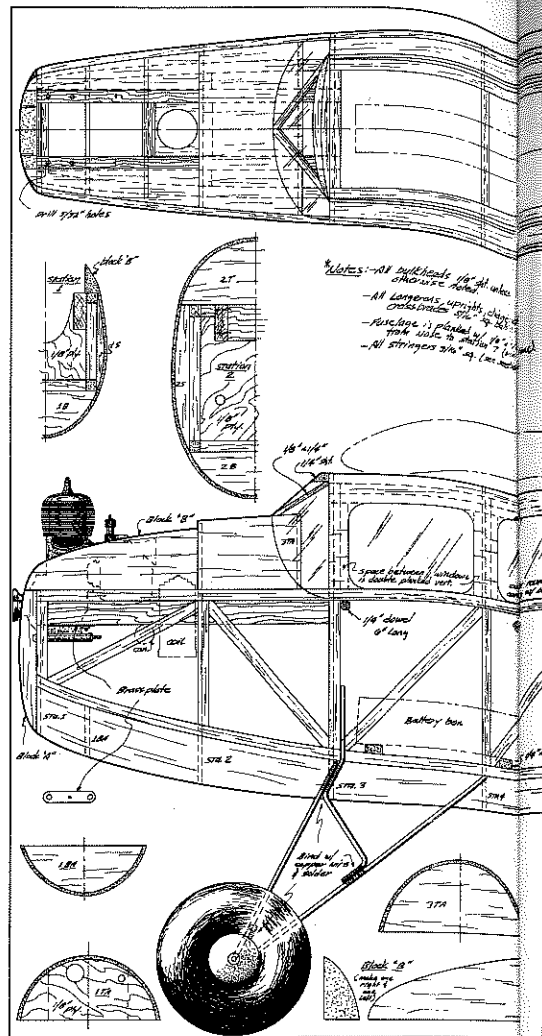 Drill 5/32" holes
Block "B"
Station
1
1/8" ply.
1S
1B
2T
2S
Station
2
1/8"
Ply.
2B
*Notes: - All bulkheads 1/8" sht. unless
otherwise noted.
- All Longerons, uprights,
crossbraces 5/16" sq.
- Fuselage is planked w/ 1/8"
from nose to station 7
- All stringers 3/16" sq.
1/8" x 1/4"
1/4" sht.
Block "B"
3TA
space between windows
is double planked vert.
1/4" dowel
6" long
coil
Brass plate
Battery box
Sta. 1
1BA
Sta. 2
Sta. 3
Sta. 4
Block "A"
1/4"
Bind w/
copper wire
& solder
1BA
1TA
1/8" ply.
3TA
Block "A"
(make one
right &
one
left)